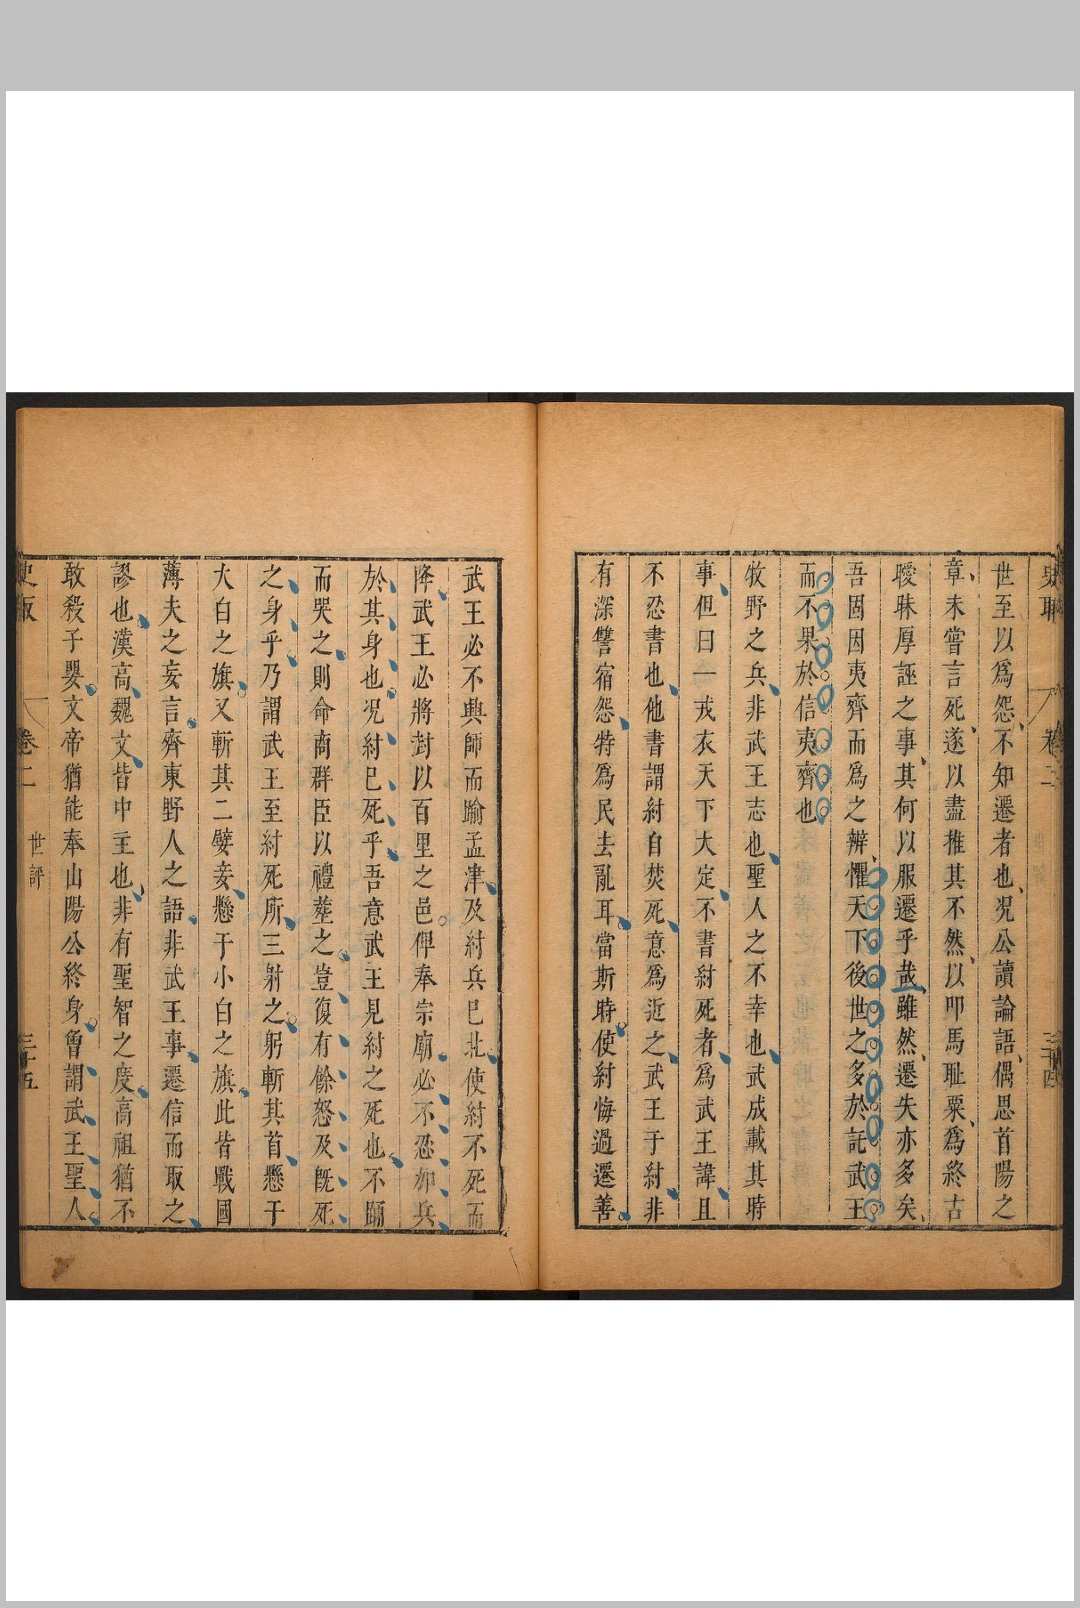 世至以爲怨不知遷者也況公讀論語偶思首陽之
章未嘗言死遂以盡推其不然以叩馬耻粟爲終古
曖昧厚誣之事其何以服遷乎哉雖然遷失亦多矣
吾固因夷齊而爲之辨懼天下後世之多於託武王
而不果於信夷齊也
牧野之兵非武王志也聖人之不幸也武成載其時
事但曰一戎衣天下大定不書紂死者爲武王諱且
不忍書也他書謂紂自焚死意爲近之武王于紂非
有深讐宿怨特爲民去亂耳當斯時使紂悔過遷善
武王必不興師而踰孟津及紂兵已北使紂不死而
降武王必將封以百里之邑俾奉宗廟必不忍加兵
於其身也況紂已死乎吾意武王見紂之死也不踊
而哭之則命商群臣以禮塟之豈復有餘怒及旣死
之身乎乃謂武王至紂死所三射之躬斬其首懸于
大白之旗又斬其二嬖妾懸于小白之旗此皆戰國
薄夫之妄言齊東野人之語非武王事遷信而取之
謬也漢高魏文皆中主也非有聖智之度高祖猶不
敢殺子嬰文帝猶能奉山陽公終身曾謂武王聖人
卷二
世評
三十五